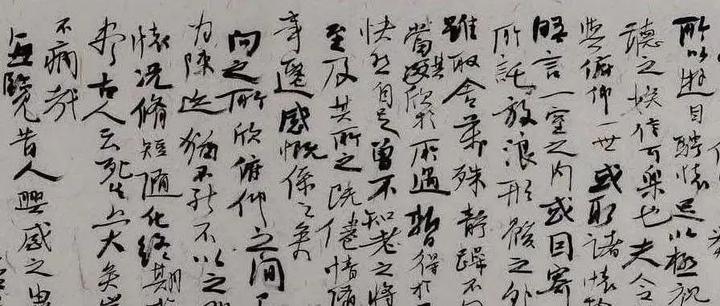 所以遊目騁懷足以極視
聽之娛信可樂也夫人
與俯仰一世或取諸懷
悟言一室之內或因寄
所託放浪形骸之外
雖取舍萬殊靜躁不
當其欣於所遇暫得於
快然自足曾不知老之將
至及其所之既倦情隨
事遷感慨係之矣
向之所欣俯仰之間
為陳迹猶不能不以之
懷況脩短隨化終期
盡古人云死生亦大矣豈
不痛哉
每覽昔人興感之由